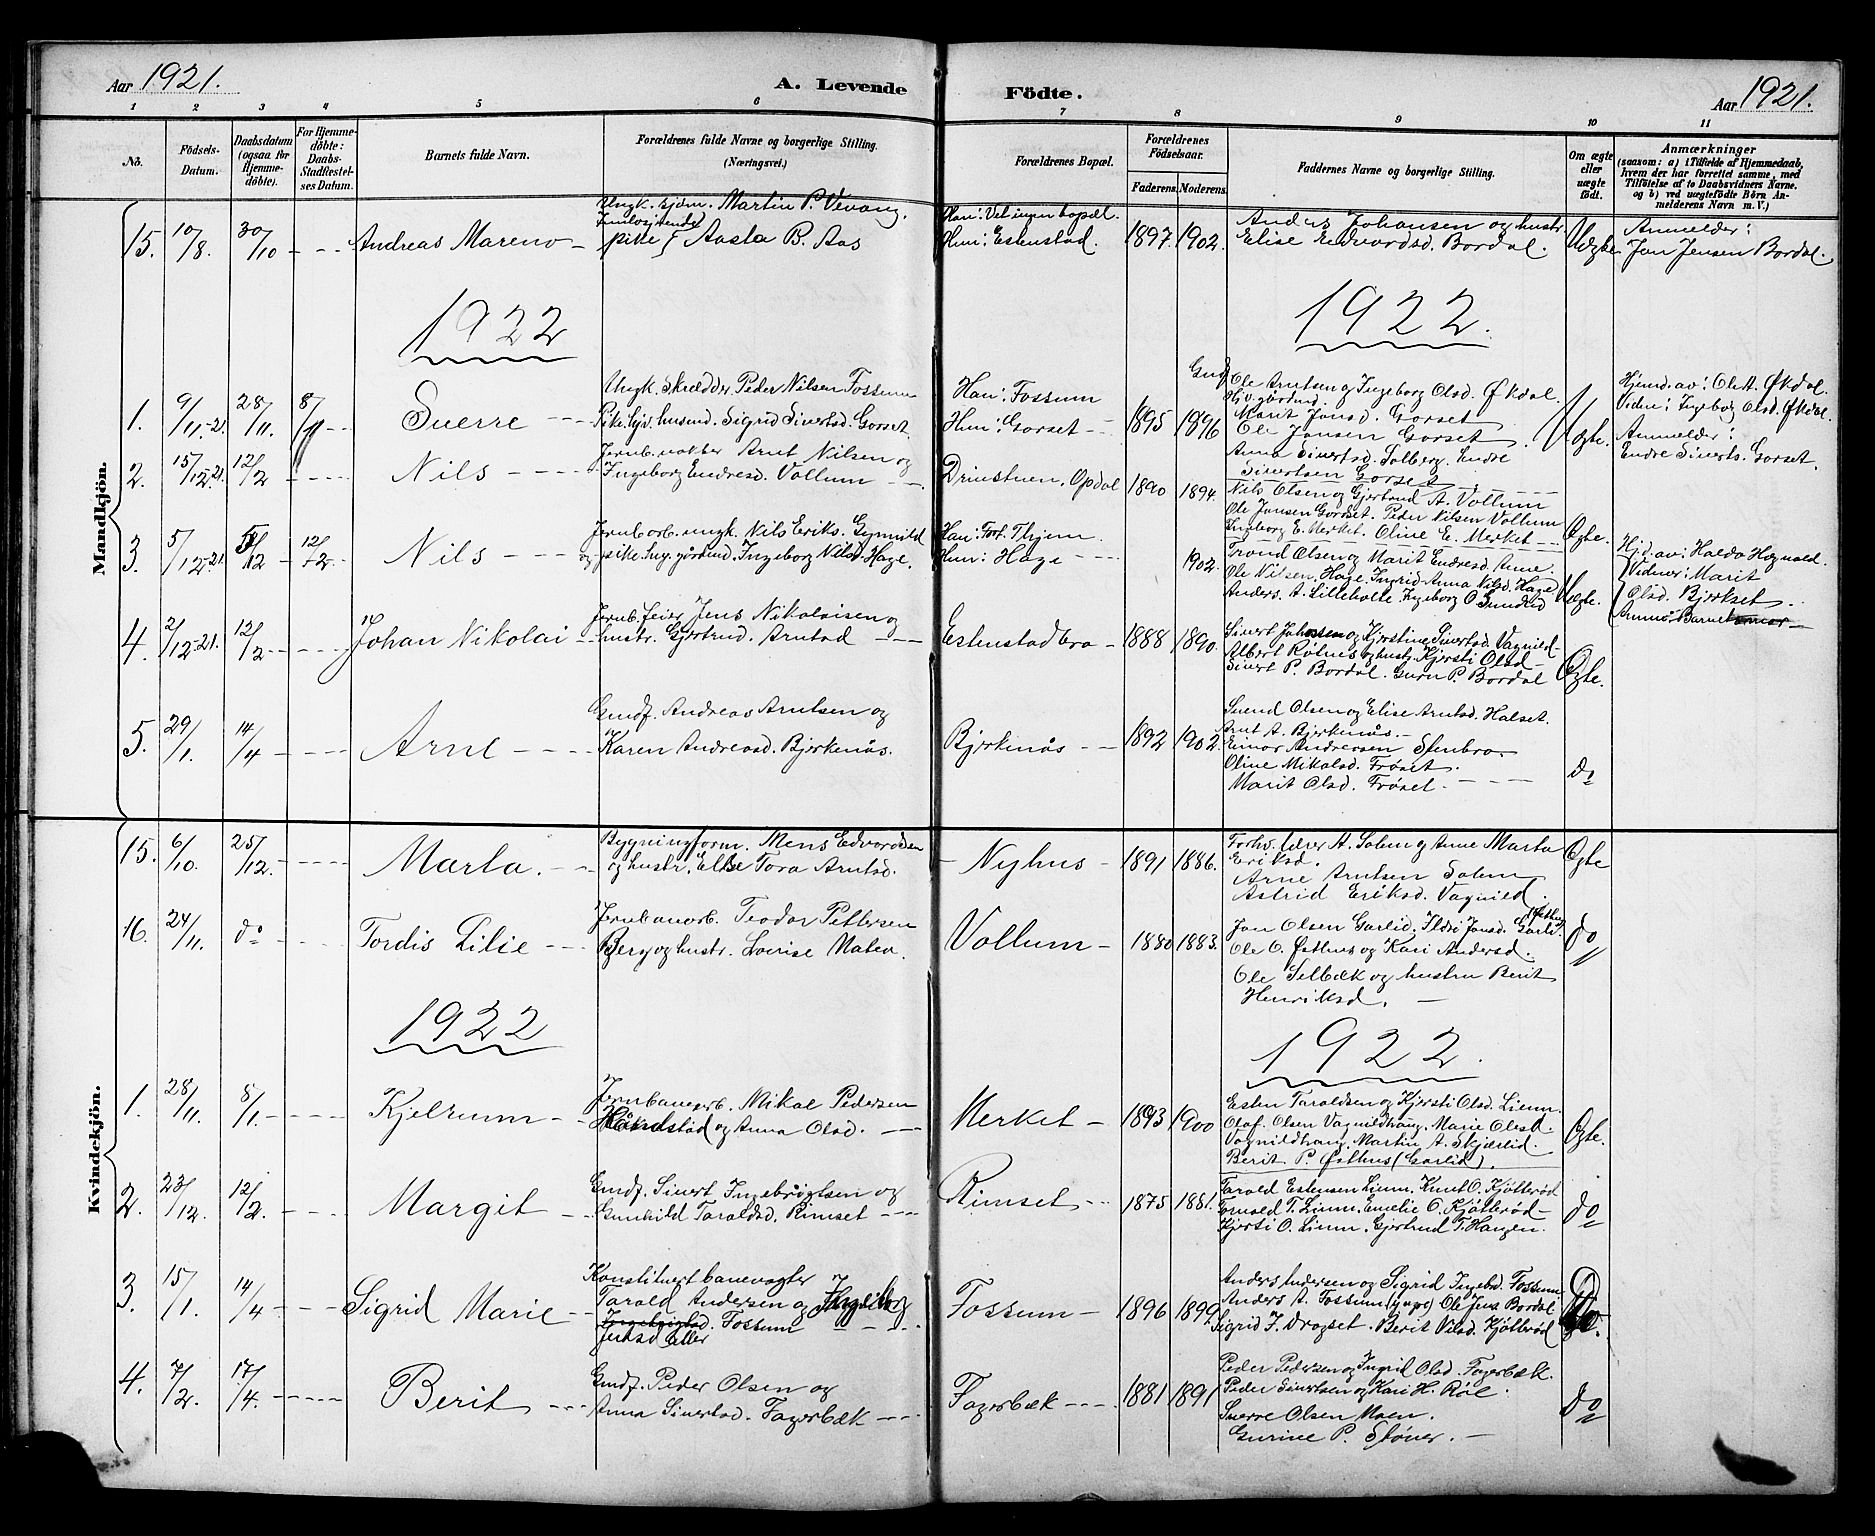 Aar 1921.
A. Levende
Födte.
Aar 1921.
1 2 3 4 5 6 7 8 9 10 11
No.
Födsels-
Datum.
Daabsdatum
(ogsaa for
Hjemme-
döbte).
For Hjemme-
döbte:
Daabs-
Stadfæstel-
ses Datum.
Barnets fulde Navn.
Forældrenes fulde Navne og borgerlige Stilling.
(Næringsvei.)
Forældrenes Bopæl.
Forældrenes
Födselsaar.
Faderens. Moderens.
Faddernes Navne og borgerlige Stilling.
Om ægte
eller
uægte
födt.
Anmærkninger
(saasom: a) i Tilfælde af Hjemmedaab,
hvem der har forrettet samme, med
Tilföielse af to Daabsvidners Navne.
og b) ved uægtefödte Börn An-
melderens Navn m. V.)
Mandkjön.
15. 10/8. 30/10 Andreas Mareno
Ungk. sjöm. Martin P. Vevang.
pike Aasta B. Aas
Han: Vet ingen bopæl.
Hun: Estenstad.
1897. 1902.
Anders Johansen og hustr.
Elise Edvardsd. Bordal.
Uægte
Anmelder:
Jon Jensen Bordal.
1922
1922.
1. 9/11.-21. 28/11. 8/1 Sverre
Ungk. skrædder Peder Nilsen Fossum
Pike Sigrid Sivertsd. Gorset.
Han: Fossum
Hun: Gorset
1895 1896
Ole Arntsen og Ingeborg Olsd. Økdal.
Marit Jonsd. Gorset
Ole Jonsen Gorset.
Anna Sivertsd. Solberg. Endre
Sivertsen Gorset
Uegte.
Hjemd. av: Ole A. Økdal.
Vidne: Ingeborg Olsd. Økdal.
Anmelder:
Endre Siverts. Gorset.
2. 15/12.21. 12/2 Nils
Jernb.vokter Arnt Nilsen og
Ingeborg Endresd. Vollum
Drivstuen, Opdal
1890 1894.
Nils Olsen og Gjertrud A. Vollum
Ole Jonsen Gorset. Peder Nilsen Vollum
Ingeborg E. Merket. Oline E. Merket
Ægte.
3. 5/12-21 12/2 12/2 Nils
Jernb.arb. ungk. Nils Eriks. Gynnild
og pike Ingeborg Nilsd. Hage.
Han: Fort. Thjem.
Hun: Hage
1902.
Trond Olsen og Marit Endresd. Anne.
Ole Nilsen Hage. Ingrid Anna Nilsd. Hage
Anders A. Lilleholte. Ingeborg O. Sundlid
Uægte.
Hjd. av: Haldo Hognald.
Vidner: Marit
Olsd. Bjerkset.
4. 2/12-21. 12/2 Johan Nikolai
Jernb. feier Jens Nikolaisen og
hustr. Gjertrud. Arntsd
Estenstadbro
1888 1890.
Sivert Johnsen og Kjerstine Sivertsd. Vagnild
Albert Rötnes og hustr. Kjersti Olsd
Sivert P. Bordal. Guru P. Bordal
Ægte.
5. 29/1. 14/4 Arne
Gmdf. Andreas Arntsen og
Karen Andreasd. Bjerkenås.
Bjerkenås
1892 1902.
Svend Olsen og Elise Arntsd. Halset.
Arnt A. Bjerkenås.
Einar Andersen Stenbro.
Oline Mikalsd. Fröset.
Marit Olsd. Fröset.
do
Kvindekjön.
15. 6/10. 25/12. Marta.
Bygningsform. Mens Edvardsen
og hustr. Else Tora Arntsd.
Nyhus
1891 1886.
Forhv. lærer A. Solem og Anne Marta
Eriksd.
Arne Arntsen Solem
Astrid Eriksd. Vagnild.
Ægte
16. 24/11. do Tordis Lilie
Jernbanearb. Teodor Pettersen
Berg og hustr. Lovise Matea.
Vollum
1880 1883.
Jon Olsen Garlid, Ildri Jonsd. Garlid.
Ole O. Østhus og Kari Andersd.
Ole Selbæk og hustru Berit
Henriksd.
do
1922
1922.
1. 28/11. 8/1. Kjelrum
Jernbanearb. Mikal Pedersen
og Anna Olsd.
Merket
1893 1900
Esten Taraldsen og Kjersti Olsd. Lium.
Olaf Olsen Vagnildhaug. Marie Olesd.
Vagnildhaug. Martin A. Skjærlid.
Berit P. Østhus (Garlid).
Ægte.
2. 23/12. 12/2. Margit
Gmdf. Sivert Ingebrigtsen og
Gunhild Taraldsd. Rimset
Rimset
1875 1881.
Tarald Estensen Lium. Knut O. Kjötteröd
Tomald T. Lium. Emelie O. Kjötteröd
Kjersti O. Lium. Gjertrud T. Haugen.
do
3. 15/1. 14/4 Sigrid Marie
Konstituert banevogter
Tarald Andersen og Ingeborg
Fossum
Jensd
Fossum
1896 1899
Anders Andersen og Sigrid Ingebd. Fossum
Anders A. Fossum (yngre) Ole Jens Bordal
Sigrid J. Drogset. Berit Nilsd. Kjötteröd
do.
4. 7/2. 17/4. Berit
Gmdf. Peder Olsen og
Anna Sivertsd. Fagerbæk
Fagerbæk
1881 1891
Peder Pedersen og Ingrid Olsd. Fagerbæk.
Peder Sivertsen og Kari H. Röe.
Sverre Olsen Moen.
Gurine P. Stöver.
do